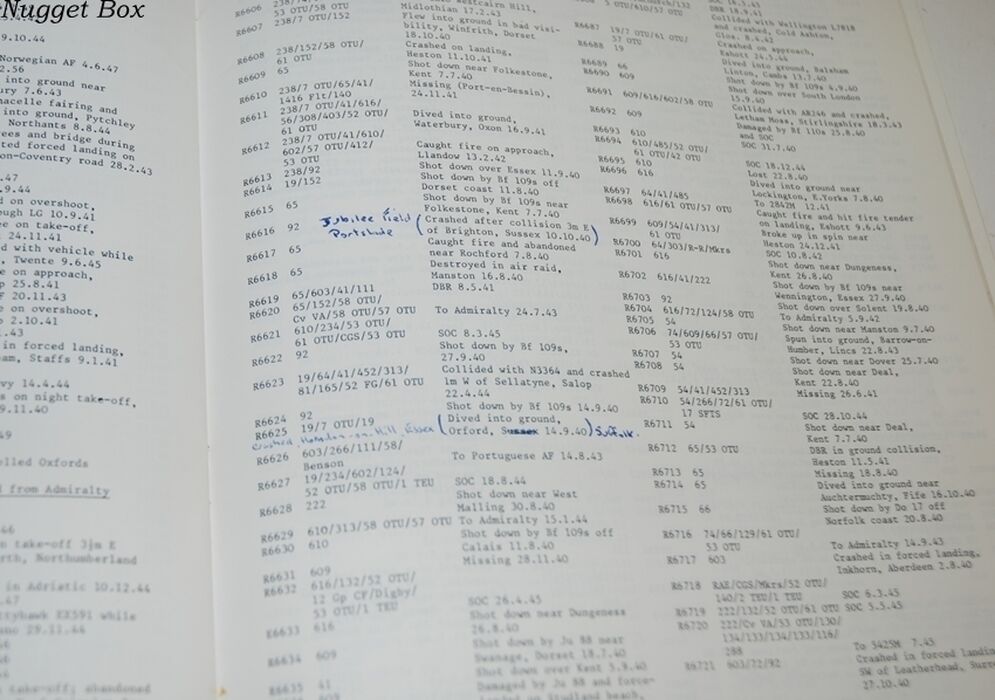 Nugget Box
9.10.44
Norwegian AF 4.6.47
2.56
into ground near
ury 7.6.43
nacelle fairing and
into ground, Pytchley
Northants 8.8.44
ees and bridge during
ted forced landing on
on-Coventry road 28.2.43
.47
9.44
d on overshoot,
ough LG 10.9.41
e on take-off,
24.11.41
d with vehicle while
, Twente 9.6.45
e on approach,
p 25.8.41
F 20.11.43
e on overshoot,
o 2.10.41
.43
in forced landing,
am, Staffs 9.1.41
vy 14.4.44
s on night take-off,
9.11.40
49
olled Oxfords
d from Admiralty
46
n take-off 3½m E
rth, Northumberland
in Adriatic 10.12.44
.47
tyhawk while
take-off; abandoned
R6606
53 OTU/58 OTU
R6607 238/7 OTU/152
R6608 238/152/58 OTU/
61 OTU
R6609 65
R6610 238/7 OTU/65/41/
1416 Flt/140
R6611 238/7 OTU/41/616/
56/308/403/52 OTU/
61 OTU
R6612 238/7 OTU/41/610/
602/57 OTU/412/
53 OTU
R6613 238/92
R6614 19/152
R6615 65
R6616 92
Jubilee Field
Portslade
R6617 65
R6618 65
R6619 65/603/41/111
R6620 65/152/58 OTU/
Cv VA/58 OTU/57 OTU
R6621 610/234/53 OTU/
61 OTU/CGS/53 OTU
R6622 92
R6623 19/64/41/452/313/
81/165/52 FG/61 OTU
R6624 92
R6625 19/7 OTU/19
R6626 603/266/111/58/
Benson
R6627 19/234/602/124/
52 OTU/58 OTU/1 TEU
R6628 222
R6629 610/313/58 OTU/57 OTU
R6630 610
R6631 609
R6632 616/132/52 OTU/
12 Gp CF/Digby/
53 OTU/1 TEU
R6633 616
R6634 609
R6635 41
609
Westcairn Hill,
Midlothian 17.2.43
Flew into ground in bad visi-
bility, Winfrith, Dorset
18.10.40
Crashed on landing,
Heston 11.10.41
Shot down near Folkestone,
Kent 7.7.40
Missing (Port-en-Bessin),
24.11.41
Dived into ground,
Waterbury, Oxon 16.9.41
Caught fire on approach,
Llandow 13.2.42
Shot down over Essex 11.9.40
Shot down by Bf 109s off
Dorset coast 11.8.40
Shot down by Bf 109s near
Folkestone, Kent 7.7.40
(Crashed after collision 3m E
of Brighton, Sussex 10.10.40)
Caught fire and abandoned
near Rochford 7.8.40
Destroyed in air raid,
Manston 16.8.40
DBR 8.5.41
To Admiralty 24.7.43
SOC 8.3.45
Shot down by Bf 109s,
27.9.40
Collided with N3364 and crashed
1m W of Sellatyne, Salop
22.4.44
Shot down by Bf 109s 14.9.40
(Dived into ground,
Orford, Sussex 14.9.40) Suffolk.
To Portuguese AF 14.8.43
SOC 18.8.44
Shot down near West
Malling 30.8.40
To Admiralty 15.1.44
Shot down by Bf 109s off
Calais 11.8.40
Missing 28.11.40
SOC 26.4.45
Shot down near Dungeness
26.8.40
Shot down by Ju 88 near
Swanage, Dorset 18.7.40
Shot down over Kent 5.9.40
Damaged by Ju 88 and force-
landed on Studland beach,
R6687 19/7 OTU/61 OTU/
57 OTU
R6688 19
R6689 66
R6690 609
R6691 609/616/602/58 OTU
R6692 609
R6693 610
R6694 610/485/52 OTU/
61 OTU/42 OTU
R6695 610
R6696 616
R6697 64/41/485
R6698 616/61 OTU/57 OTU
R6699 609/54/41/313/
61 OTU
R6700 64/303/R-R/Mkrs
R6701 616
R6702 616/41/222
R6703 92
R6704 616/72/124/58 OTU
R6705 54
R6706 74/609/66/57 OTU/
53 OTU
R6707 54
R6708 54
R6709 54/41/452/313
R6710 54/266/72/61 OTU/
17 SFTS
R6711 54
R6712 65/53 OTU
R6713 65
R6714 65
R6715 66
R6716 74/66/129/61 OTU/
53 OTU
R6717 603
R6718 RAE/CGS/Mkrs/52 OTU/
140/2 TEU/1 TEU
R6719 222/132/52 OTU/61 OTU
R6720 222/Cv VA/53 OTU/130/
134/133/134/133/116/
288
R6721 603/72/92
DBR 18.9.41
Collided with Wellington L7818
and crashed, Cold Ashton,
Glos. 8.4.42
Crashed on approach,
Eshott 24.5.44
Dived into ground, Balsham
Linton, Cambs 13.7.40
Shot down by Bf 109s 4.9.40
Shot down over South London
15.9.40
Collided with AR246 and crashed,
Letham Moss, Stirlingshire 18.3.43
Damaged by Bf 110s 25.8.40
and SOC
SOC 31.7.40
SOC 18.12.44
Lost 22.8.40
Dived into ground near
Lockington, E.Yorks 7.8.40
To 2842M 12.41
Caught fire and hit fire tender
on landing, Eshott 9.6.43
Broke up in spin near
Heston 24.12.41
SOC 10.8.42
Shot down near Dungeness,
Kent 26.8.40
Shot down by Bf 109s near
Wennington, Essex 27.9.40
Shot down over Solent 19.8.40
To Admiralty 5.9.42
Shot down near Manston 9.7.40
Spun into ground, Barrow-on-
Humber, Lincs 22.8.43
Shot down near Dover 25.7.40
Shot down near Deal,
Kent 22.8.40
Missing 26.6.41
SOC 28.10.44
Shot down near Deal,
Kent 7.7.40
DBR in ground collision,
Heston 11.5.41
Missing 18.8.40
Dived into ground near
Auchtermuchty, Fife 16.10.40
Shot down by Do 17 off
Norfolk coast 20.8.40
To Admiralty 14.9.43
Crashed in forced landing,
Inkhorn, Aberdeen 2.8.40
SOC 6.3.45
SOC 5.5.45
To 5425M 7.45
Crashed in forced landin
SW of Leatherhead, Surre
27.10.40